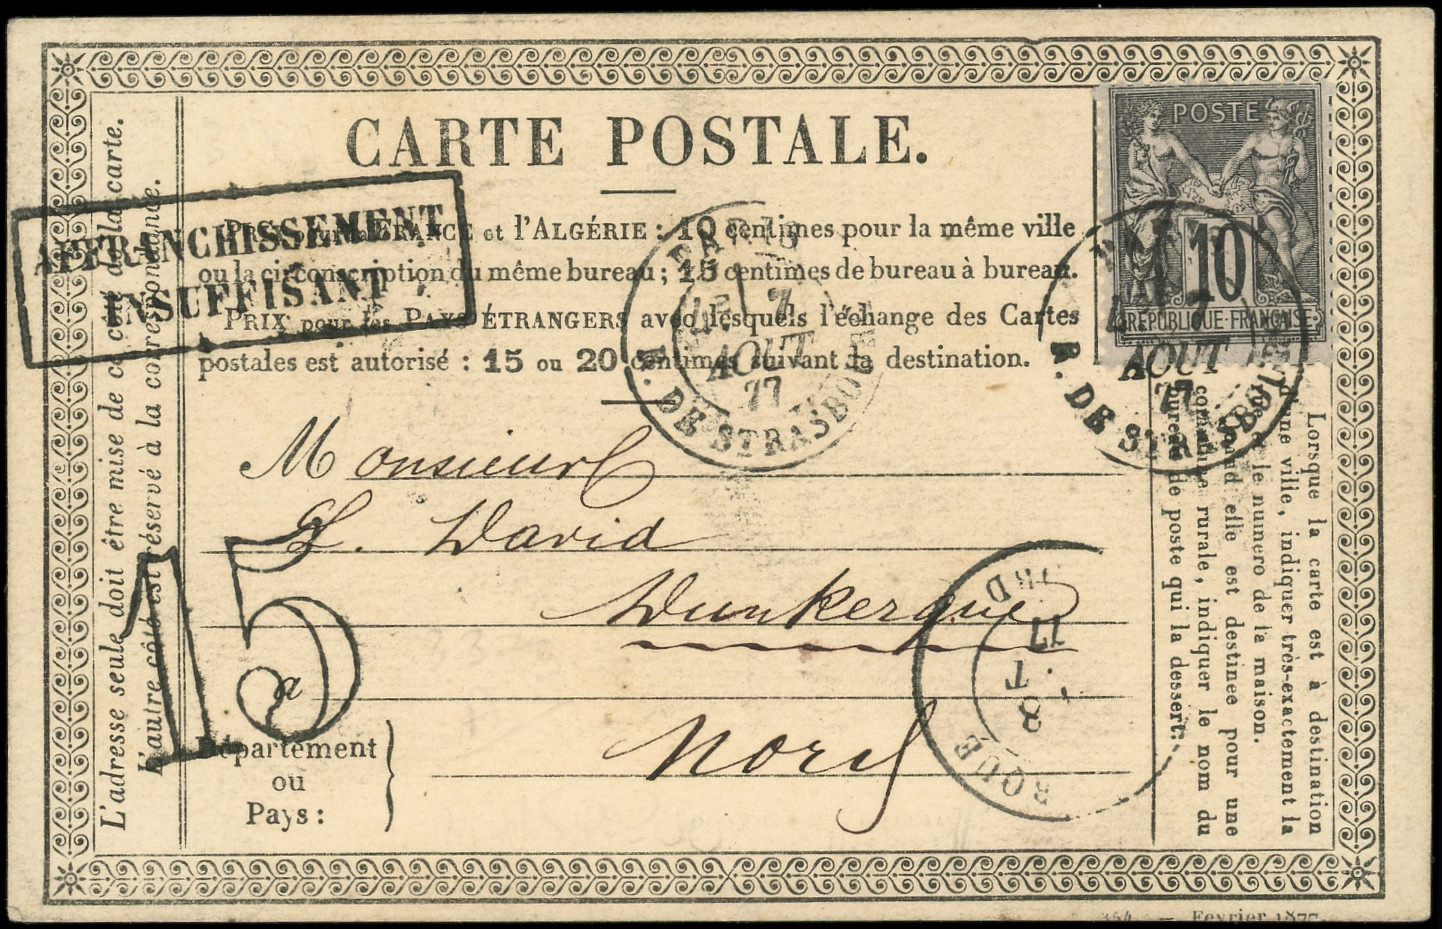 CARTE POSTALE.
POSTE
10
RÉPUBLIQUE-FRANÇAISE
AFFRANCHISSEMENT
INSUFFISANT
PRIX pour la FRANCE et l'ALGÉRIE : 10 centimes pour la même ville
ou la circonscription du même bureau ; 15 centimes de bureau à bureau.
PRIX pour les PAYS ÉTRANGERS avec lesquels l'échange des Cartes
postales est autorisé : 15 ou 20 centimes suivant la destination.
PARIS
7
AOUT
77
R. DE STRASBO
AOUT
77
R. DE STRASBO
Monsieur
L. David
Dunkerque
a
Nord
15
Département
ou
Pays :
RQUE
8
T
77
RD
L'adresse seule doit être mise de ce côté de la carte.
L'autre côté est réservé à la correspondance.
Lorsque la carte est à destination
d'une ville, indiquer très-exactement la
rue et le numéro de la maison.
Quand elle est destinée pour une
commune rurale, indiquer le nom du
bureau de poste qui la dessert.
Février 1877.